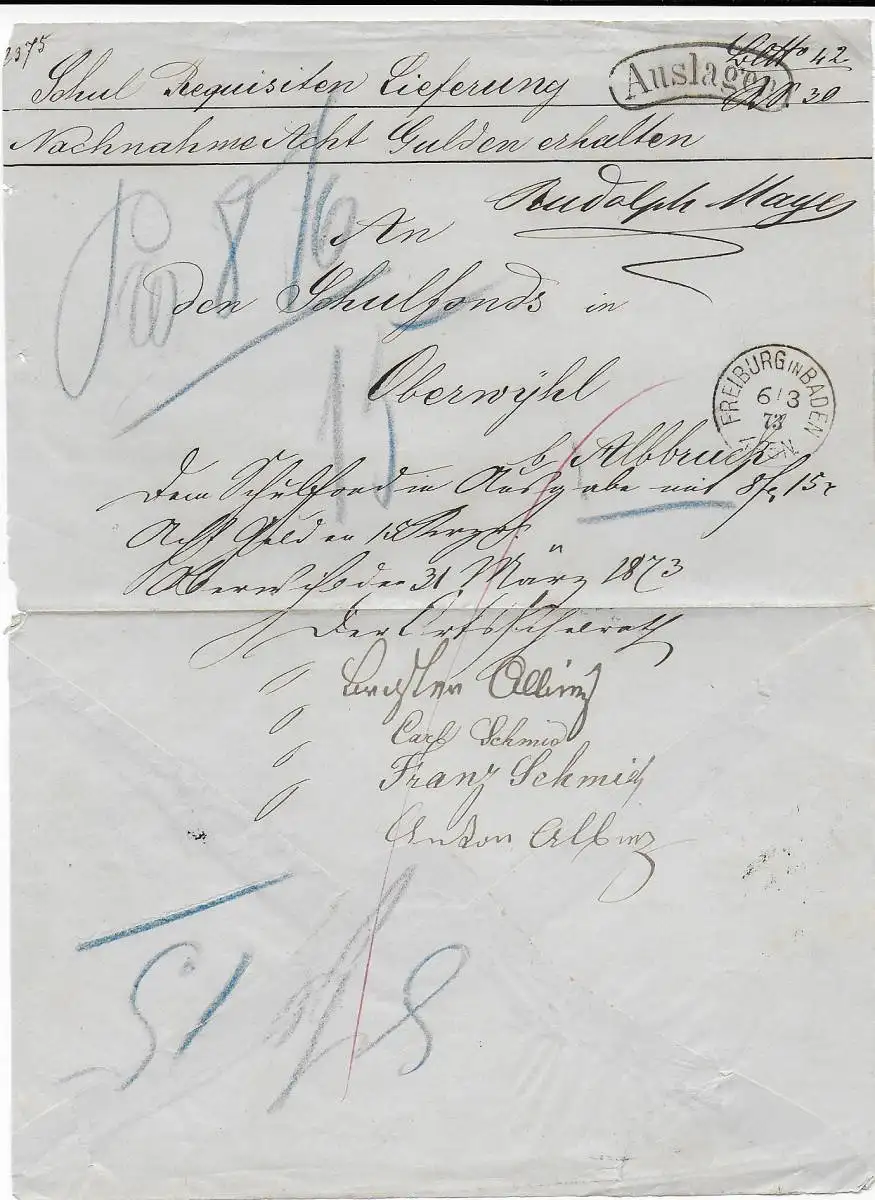 2375
Schul Requisiten Lieferung
Auslagen
Lotto 42
30
Nachnahme Acht Gulden erhalten
Rudolph Mayer
8
An
den Schulfonds in
15
Oberwÿhl
FREIBURG IN BADEN
6 3
73
b/ Albbruck
Dem Schulfond in Ausgabe mit 8 f 15 x
Acht Gulden 15
den 31 März 1873
Der Ortsschulrath
Albiez
Carl Schmid
Franz Schmid
Anton Albiez